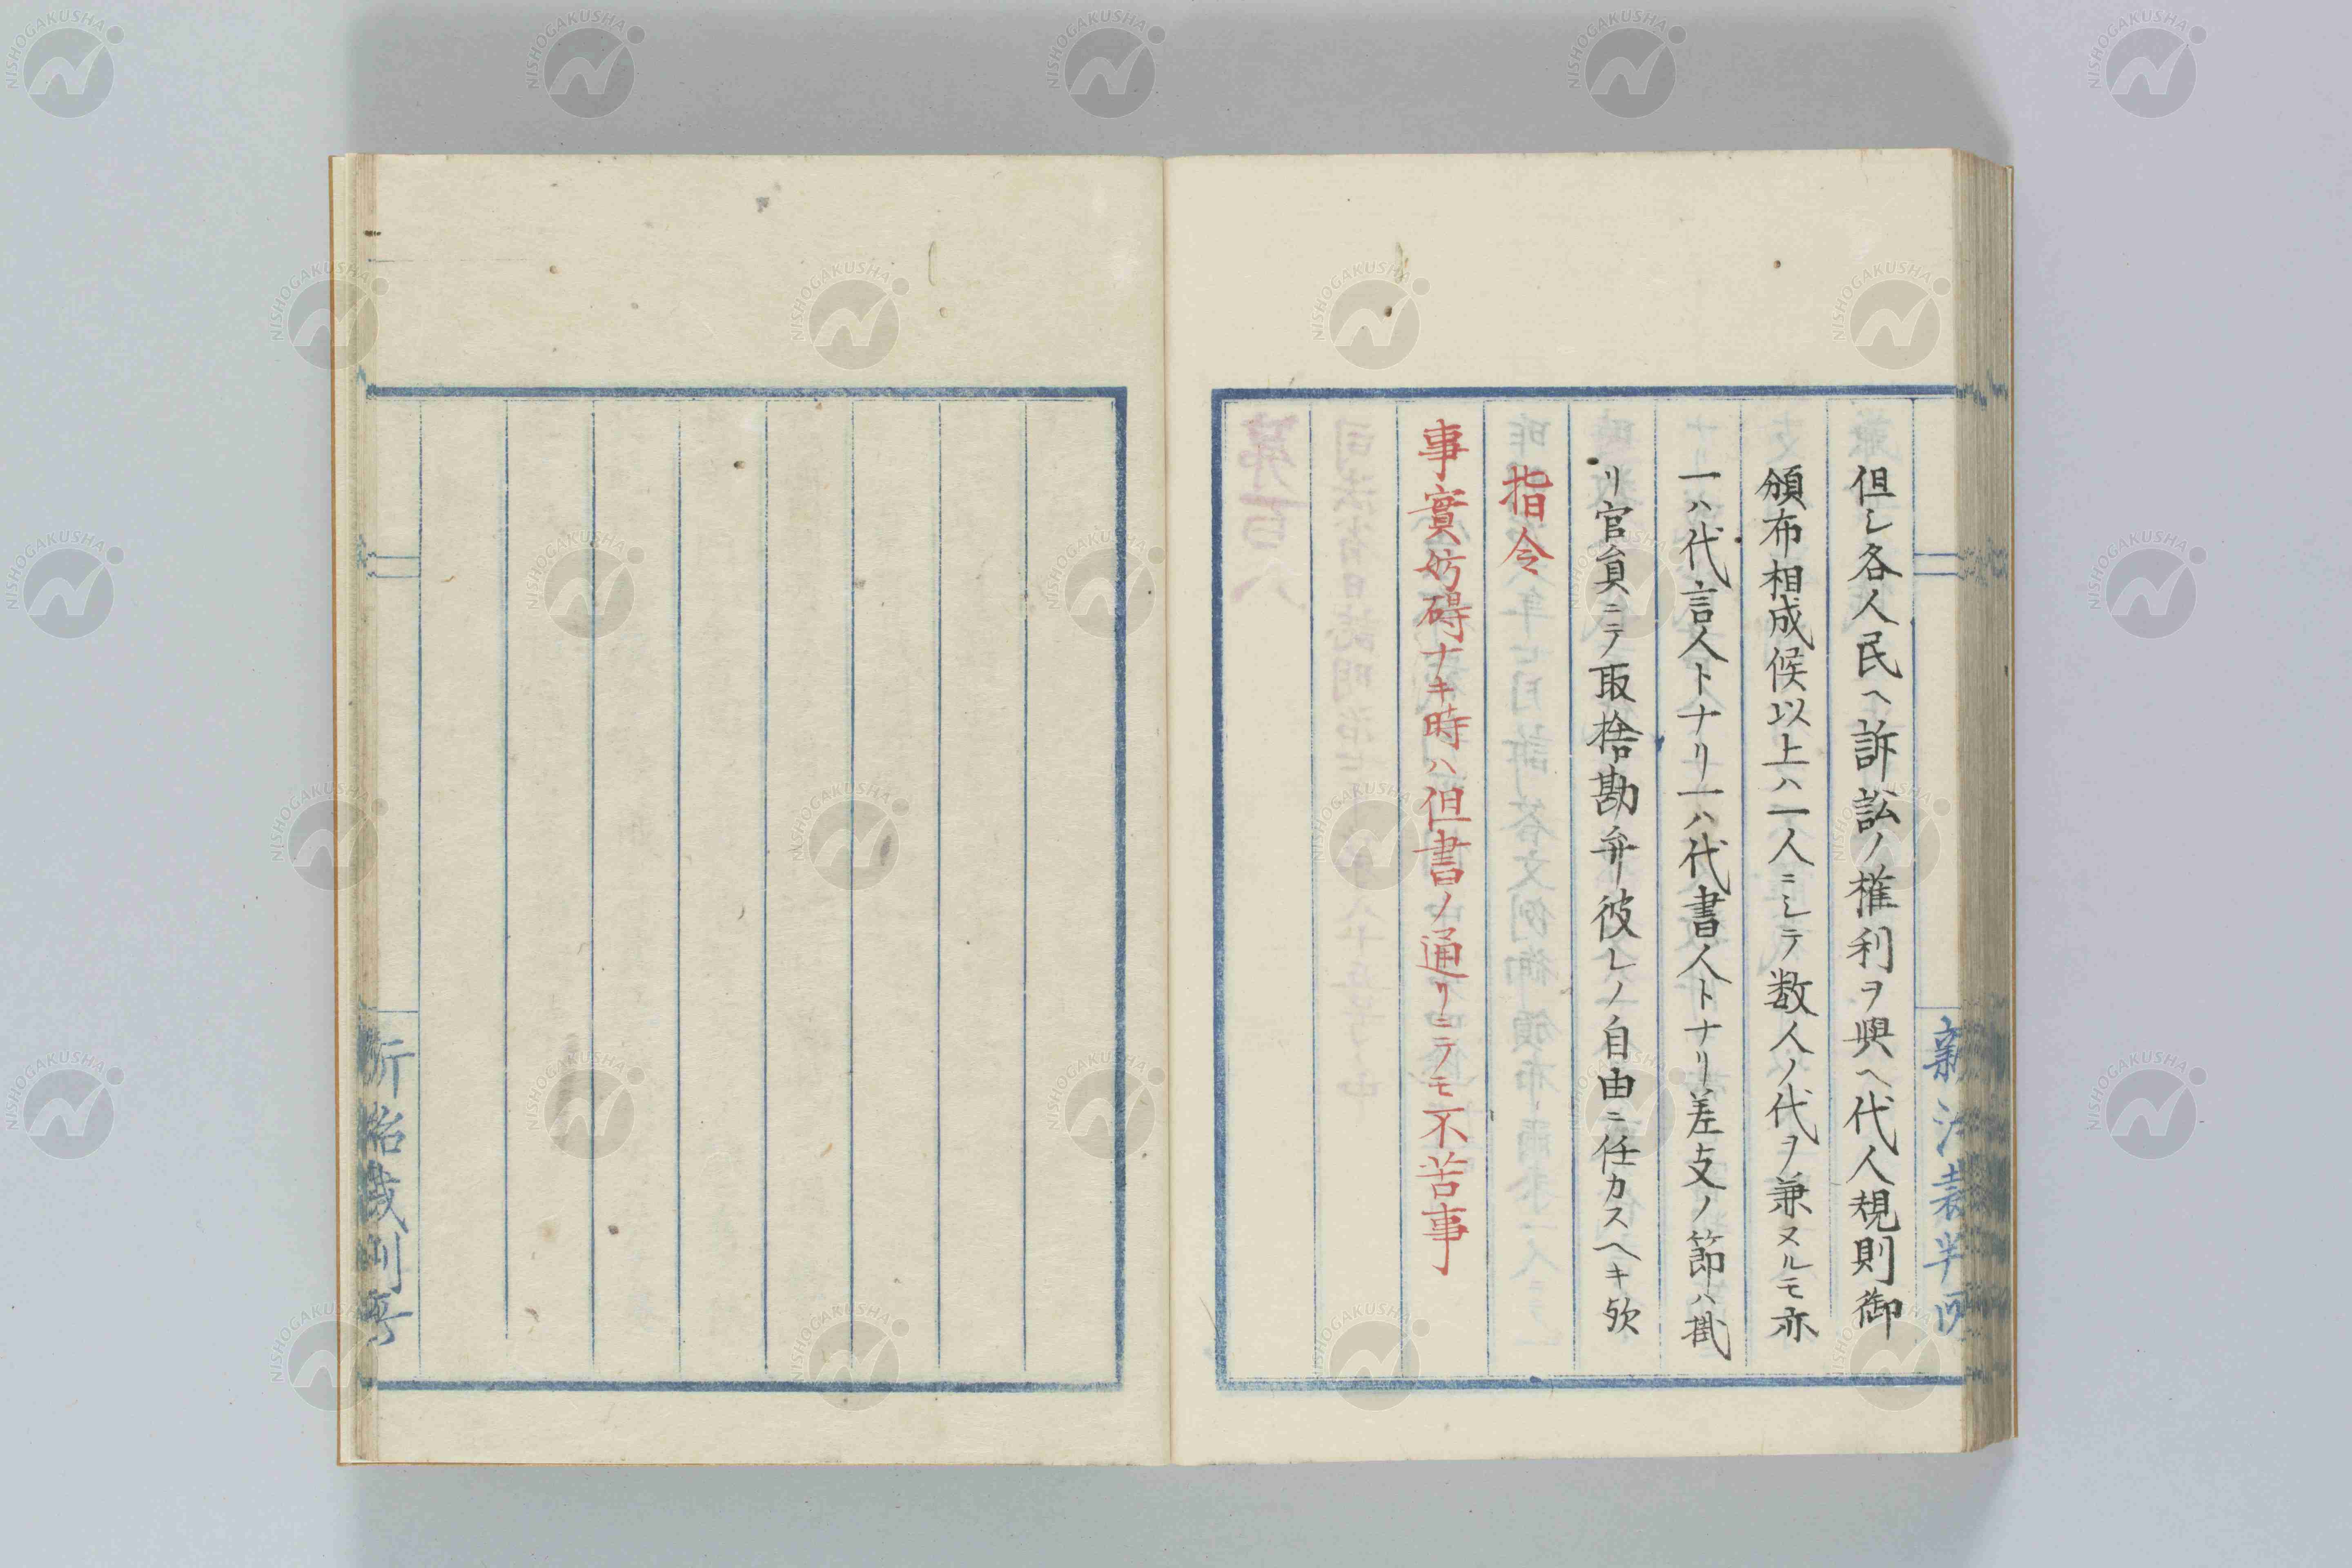 但シ各人民ヘ訴訟ノ権利ヲ與ヘ代人規則御
頒布相成候以上ハ一人ニシテ数人ノ代ヲ兼ヌルモ亦
一ハ代言人トナリ一ハ代書人トナリ差支ノ節ハ掛
リ官員ニテ取捨勘弁彼レノ自由ニ任カスヘキ歟
指令
事實妨碍ナキ時ハ但書ノ通リニテモ不苦事
NISHOGAKUSHA